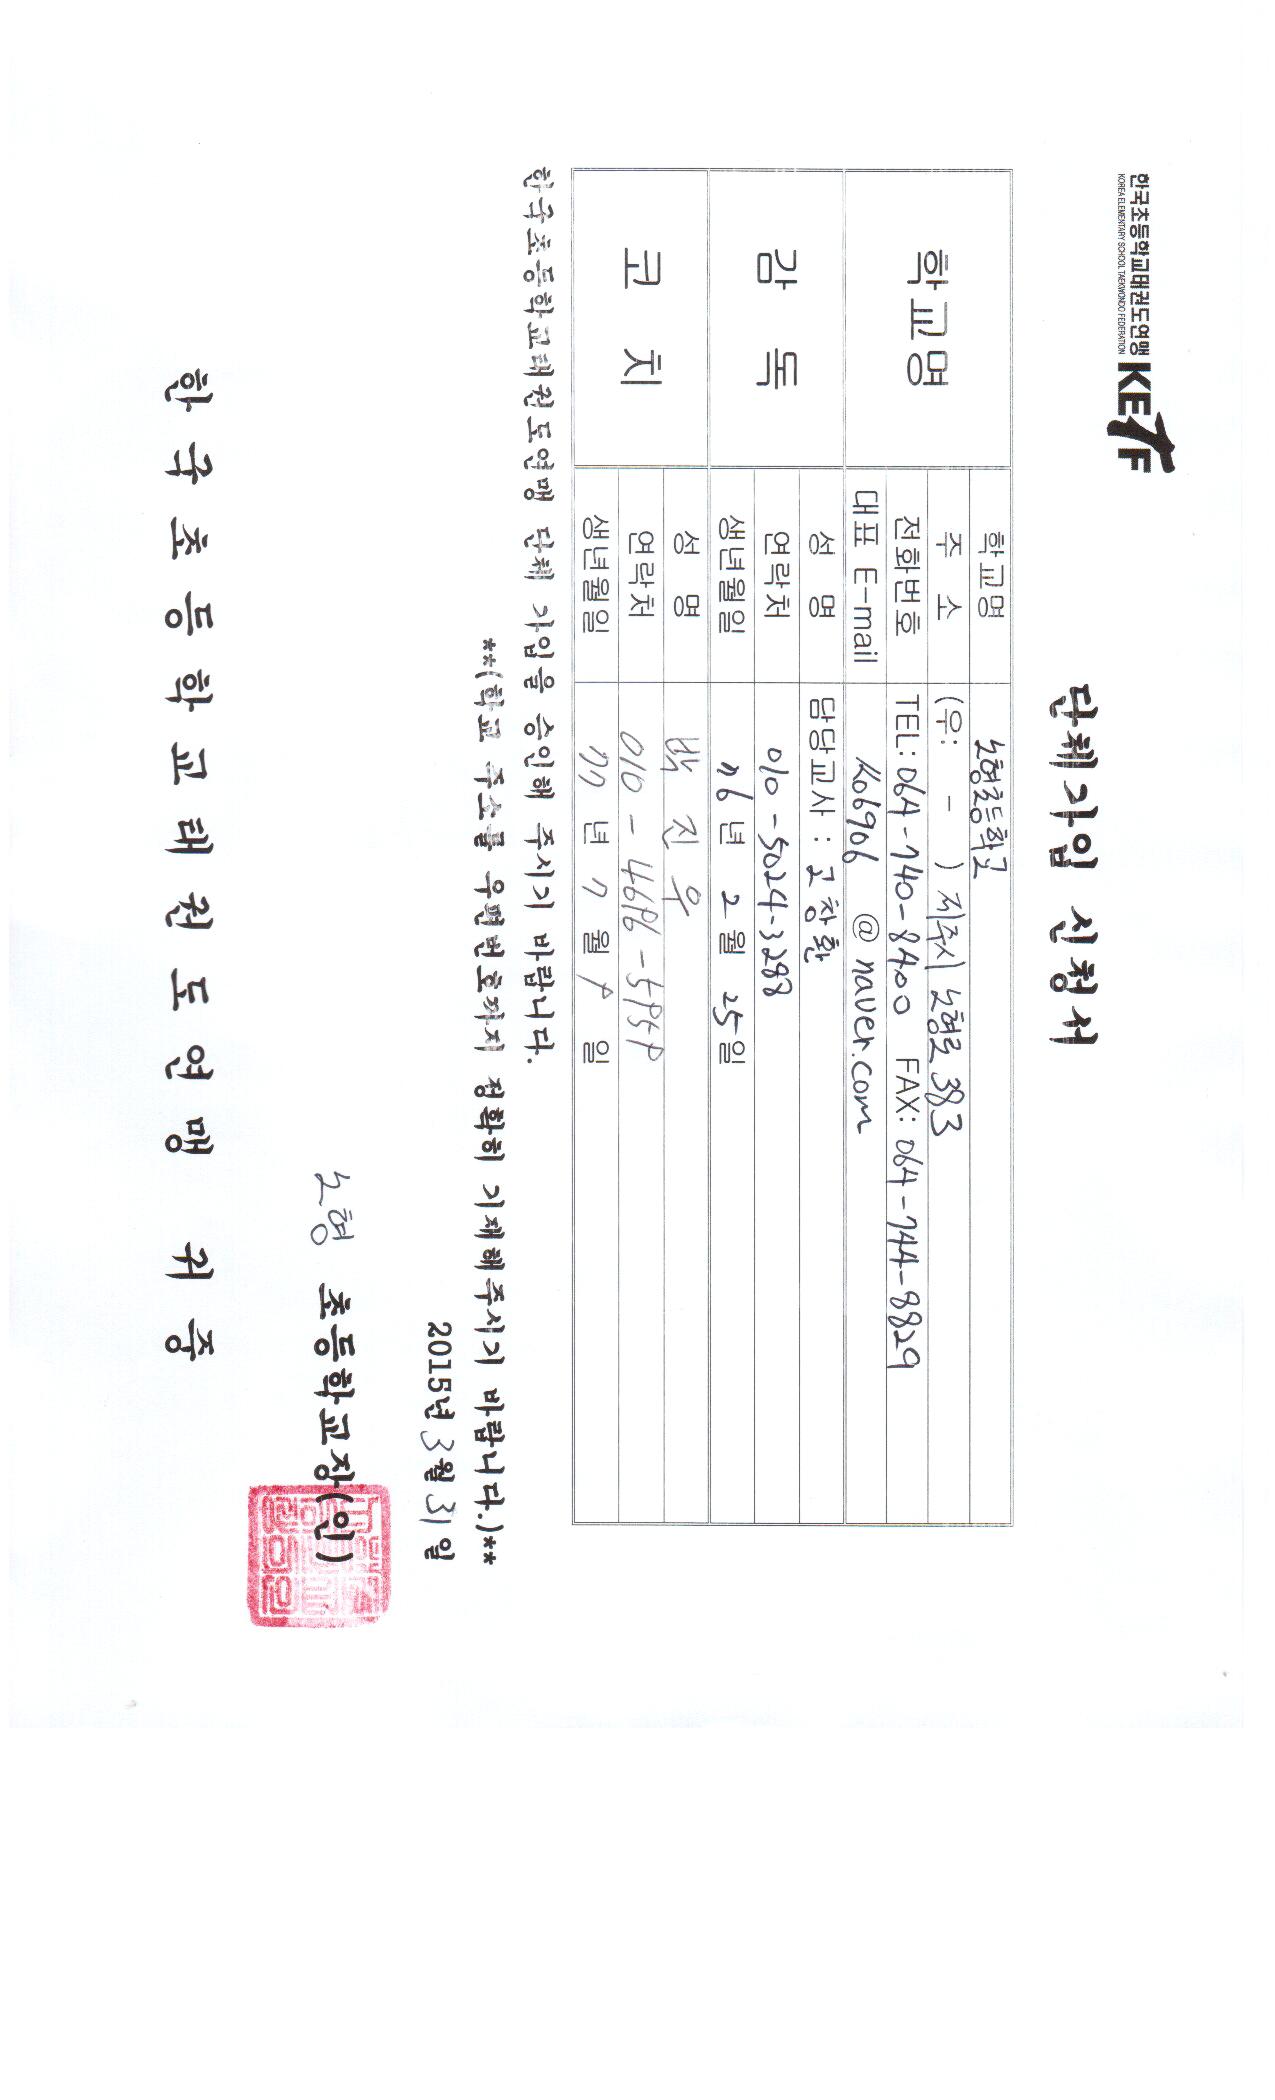 한국초등학교태권도연맹
KOREA ELEMENTARY SCHOOL TAEKWONDO FEDERATION
KETF
단체가입 신청서
학교명
학교명 노형초등학교
주 소 (우: - ) 제주시 노형로 383
전화번호 TEL: 064-740-8400 FAX: 064-744-8829
대표 E-mail ko6906 @ naver.com
감 독
성 명 담당교사 : 고창환
연락처 010-5024-3288
생년월일 76년 2월 25일
코 치
성 명 박진우
연락처 010-4696-5959
생년월일 77년 7월 9일
한국초등학교태권도연맹 단체 가입을 승인해 주시기 바랍니다.
**(학교 주소를 우편번호까지 정확히 기재해주시기 바랍니다.)**
2015년 3월 31일
노형 초등학교장(인)
한국초등학교태권도연맹 귀중